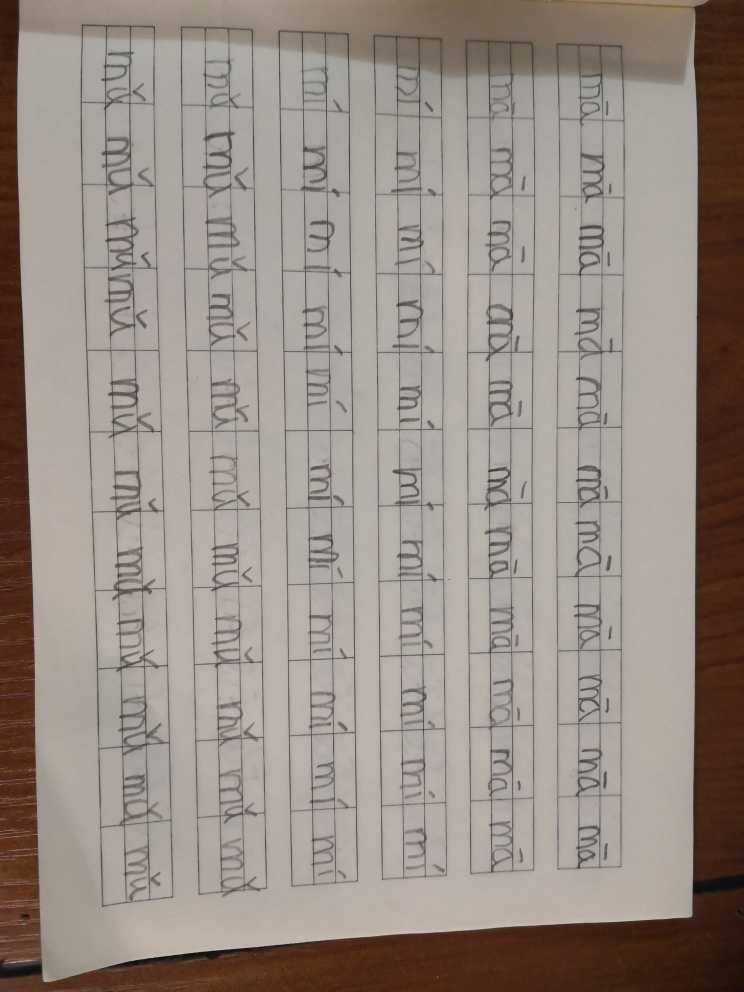 mā mā mā mā mā mā mā mā mā mā mā
mā mā mā mā mā mā mā mā mā mā mā
mí mí mí mí mí mí mí mí mí mí mí
mí mí mí mí mí mí mí mí mí mí mí
mǔ mǔ mǔ mǔ mǔ mǔ mǔ mǔ mǔ mǔ mǔ
mǔ mǔ mǔ mǔ mǔ mǔ mǔ mǔ mǔ mǔ mǔ